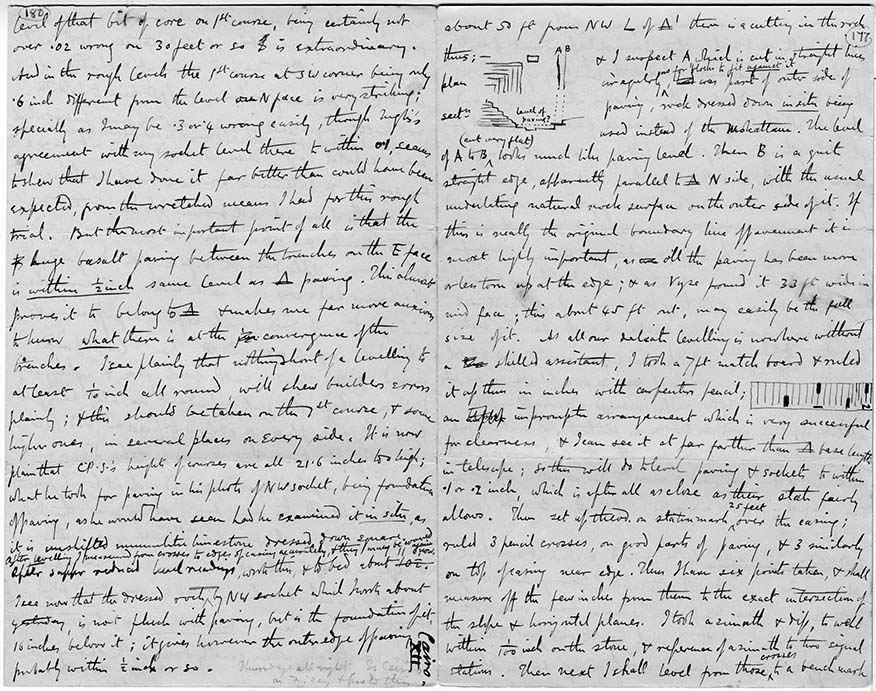 180
level of that bit of core on 1st course, being certainly not
over .02 wrong on 30 feet or so is extraordinary.
And in the rough levels the 1st course at SW corner being only
.6 inch different from the level on N face is very striking;
specially as I may be .3 or .4 wrong easily, though Inglis's
agreement with my socket level there to within .01, seems
to shew that I have done it far better than could have been
expected, from the wretched means I had for this rough
trial. But the most important point of all is that the
huge basalt paving between the trenches on the E face
is within ½ inch same level as Δ paving. This almost
proves it to belong to Δ & makes me far more anxious
to know what there is at the convergence of the
trenches. I see plainly that nothing short of a levelling to
at least 1/10 inch all round will shew builders errors
plainly; & this should be taken on the 1st course, & some
higher ones, in several places on every side. It is now
plain that C.P.S.'s heights of courses are all 21.6 inches too high;
what he took for paving in his photo of NW socket, being foundation
of paving, as he would have seen had he examined it in situ, as
it is unshifted nummulitic limestone dressed down square
After levelling I measured from crosses to edges of casing accurately, & then away to
After supper reduced level readings, wrote this, & to bed about
I see now that the dressed rock by NW socket which I wrote about
yesterday, is not flush with paving, but is the foundation of it
16 inches below it; it gives however the outer edge of paving
probably within ½ inch or so.
Cairo
XIII
177
about 50 ft from NW L of Δ' there is a cutting in the rock
thus;
A B
plan
sectn
level of paving?
(cut very flat)
& I suspect A which is cut in straight lines
irregularly as for blocks to fit against it was part of outer side of
paving, rock dressed down in situ being
used instead of the Mokattam. The level
of A to B, looks much like paving level. Then B is a quit
straight edge, apparently parallel to Δ N side, with the usual
undulating natural rock surface on the outer side of it. If
this is really the original boundary line of pavement it is
most highly important, as all the paving has been more
or less torn up at the edge; & as Vyse found it 33 ft wide in
mid face; this about 45 ft out, may easily be the full
size of it. As all our delicate levelling is nowhere without
a skilled assistant, I took a 7 ft match board & ruled
it up thus in inches with carpenters pencil;
an impromptu arrangement which is very successful
for clearness, & I can see it at far farther than Δ base length
in telescope; so this will do to level paving & sockets to within
.01 or .02 inch, which is after all as close as their state fairly
allows. Then set up theod. on station mark 25 feet over the casing;
ruled 3 pencil crosses, on good parts of paving, & 3 similarly
on top of casing near edge. Thus I have six points taken, & shall
measure off the few inches from them to the exact intersection of
the slope & horizontal planes. I took azimuth & dip, to well
within 1/100 inch on the stone, & reference of azimuth to two signal
stations. Then next I shall level from those crosses to a bench mark